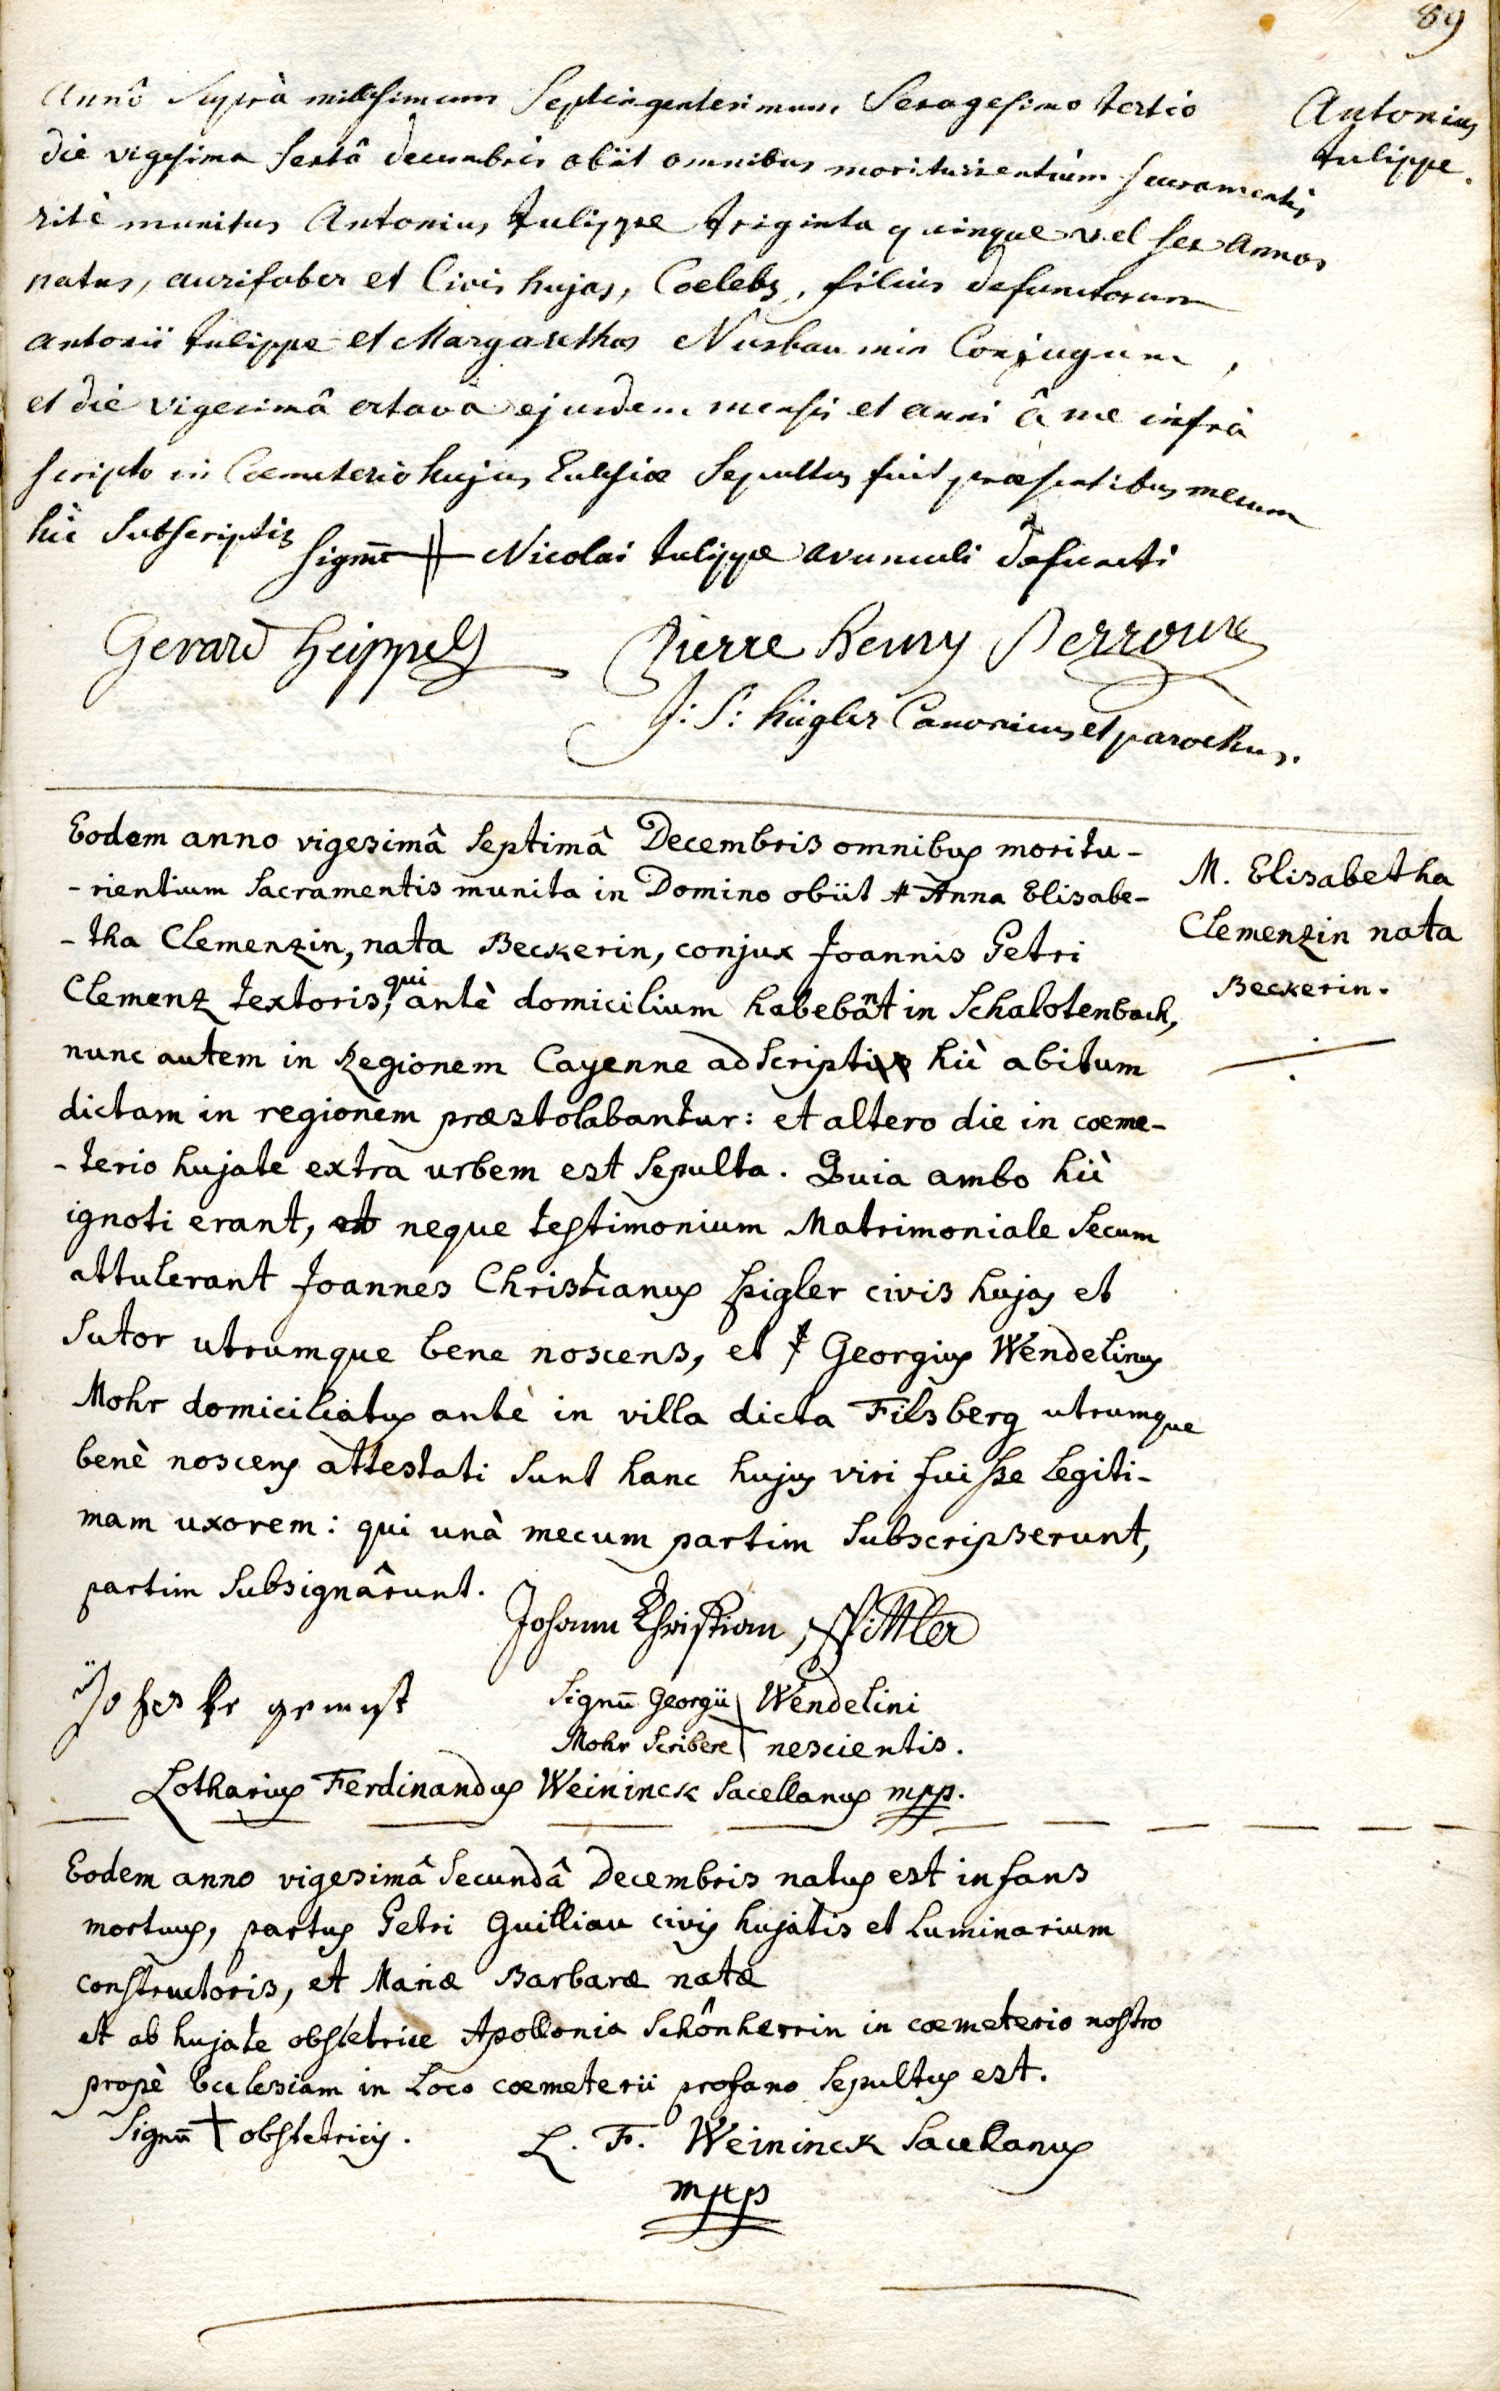 89
Annô Suprà millesimum Septingentesimum Sexagesimo tertio
Antonius
tulippe.
die vigesima sextâ decembris obiit omnibus moriturientium sacramentis
ritè munitus Antonius tulippe triginta quinque vel sex annos
natus, aurifaber et Civis hujas, Coelebs, filius defunctorum
antonii tulippe et Margarethae Nusbaumin Conjugum,
et die vigesimâ octava ejusdem mensis et anni â me infrà
scripto in Coemeterio hujus Ecclesiae Sepultus fuit praesentibus mecum
hic Subscriptis
signũ Nicolai tulippe avunculi defuncti
Gerard heippels Pierre Remy Perroux
J: S: hügler Canonicus et parochus.
Eodem anno vigesimâ Septimâ Decembris omnibus moritu-
-rientium Sacramentis munita in Domino obiit Anna Elisabe-
-tha Clemenzin, nata Beckerin, conjux Joannis Petri
Clemenz textoris, qui antè domicilium habebant in Schalotenbach,
nunc autem in Regionem Cayenne adscripti hìc abitum
dictam in regionem praestolabantur: et altero die in coeme-
-terio hujate extrà urbem est Sepulta. Quia ambo hìc
ignoti erant, neque testimonium Matrimoniale Secum
attulerant Joannes Christianus Spigler civis hujas et
Sutor utrumque bene noscens, et Georgius Wendelinus
Mohr domiciliatus antè in villa dicta Filsberg utrumque
benè noscens attestati Sunt hanc hujus viri fuisse Legiti-
mam uxorem: qui unà mecum partim Subscripserunt,
partim Subsignârunt.
M. Elisabetha
Clemenzin nata
Beckerin.
Johann Christian
Signũ Georgii Wendelini
Mohr Scribere nescientis.
Lotharius Ferdinandus Weininck Sacellanus mpp.
Eodem anno vigesimâ Secundâ Decembris natus est infans
mortuus, partus Petri Guilliau civis hujatis et Luminarium
constructoris, et Mariae Barbarae natae
et ab hujate obstetrice Apollonia Schönherrin in coemeterio nostro
propè Ecclesiam in Loco coemeterii profano Sepultus est.
Signũ + obstetricis.
L. F. Weininck Sacellanus
mpp